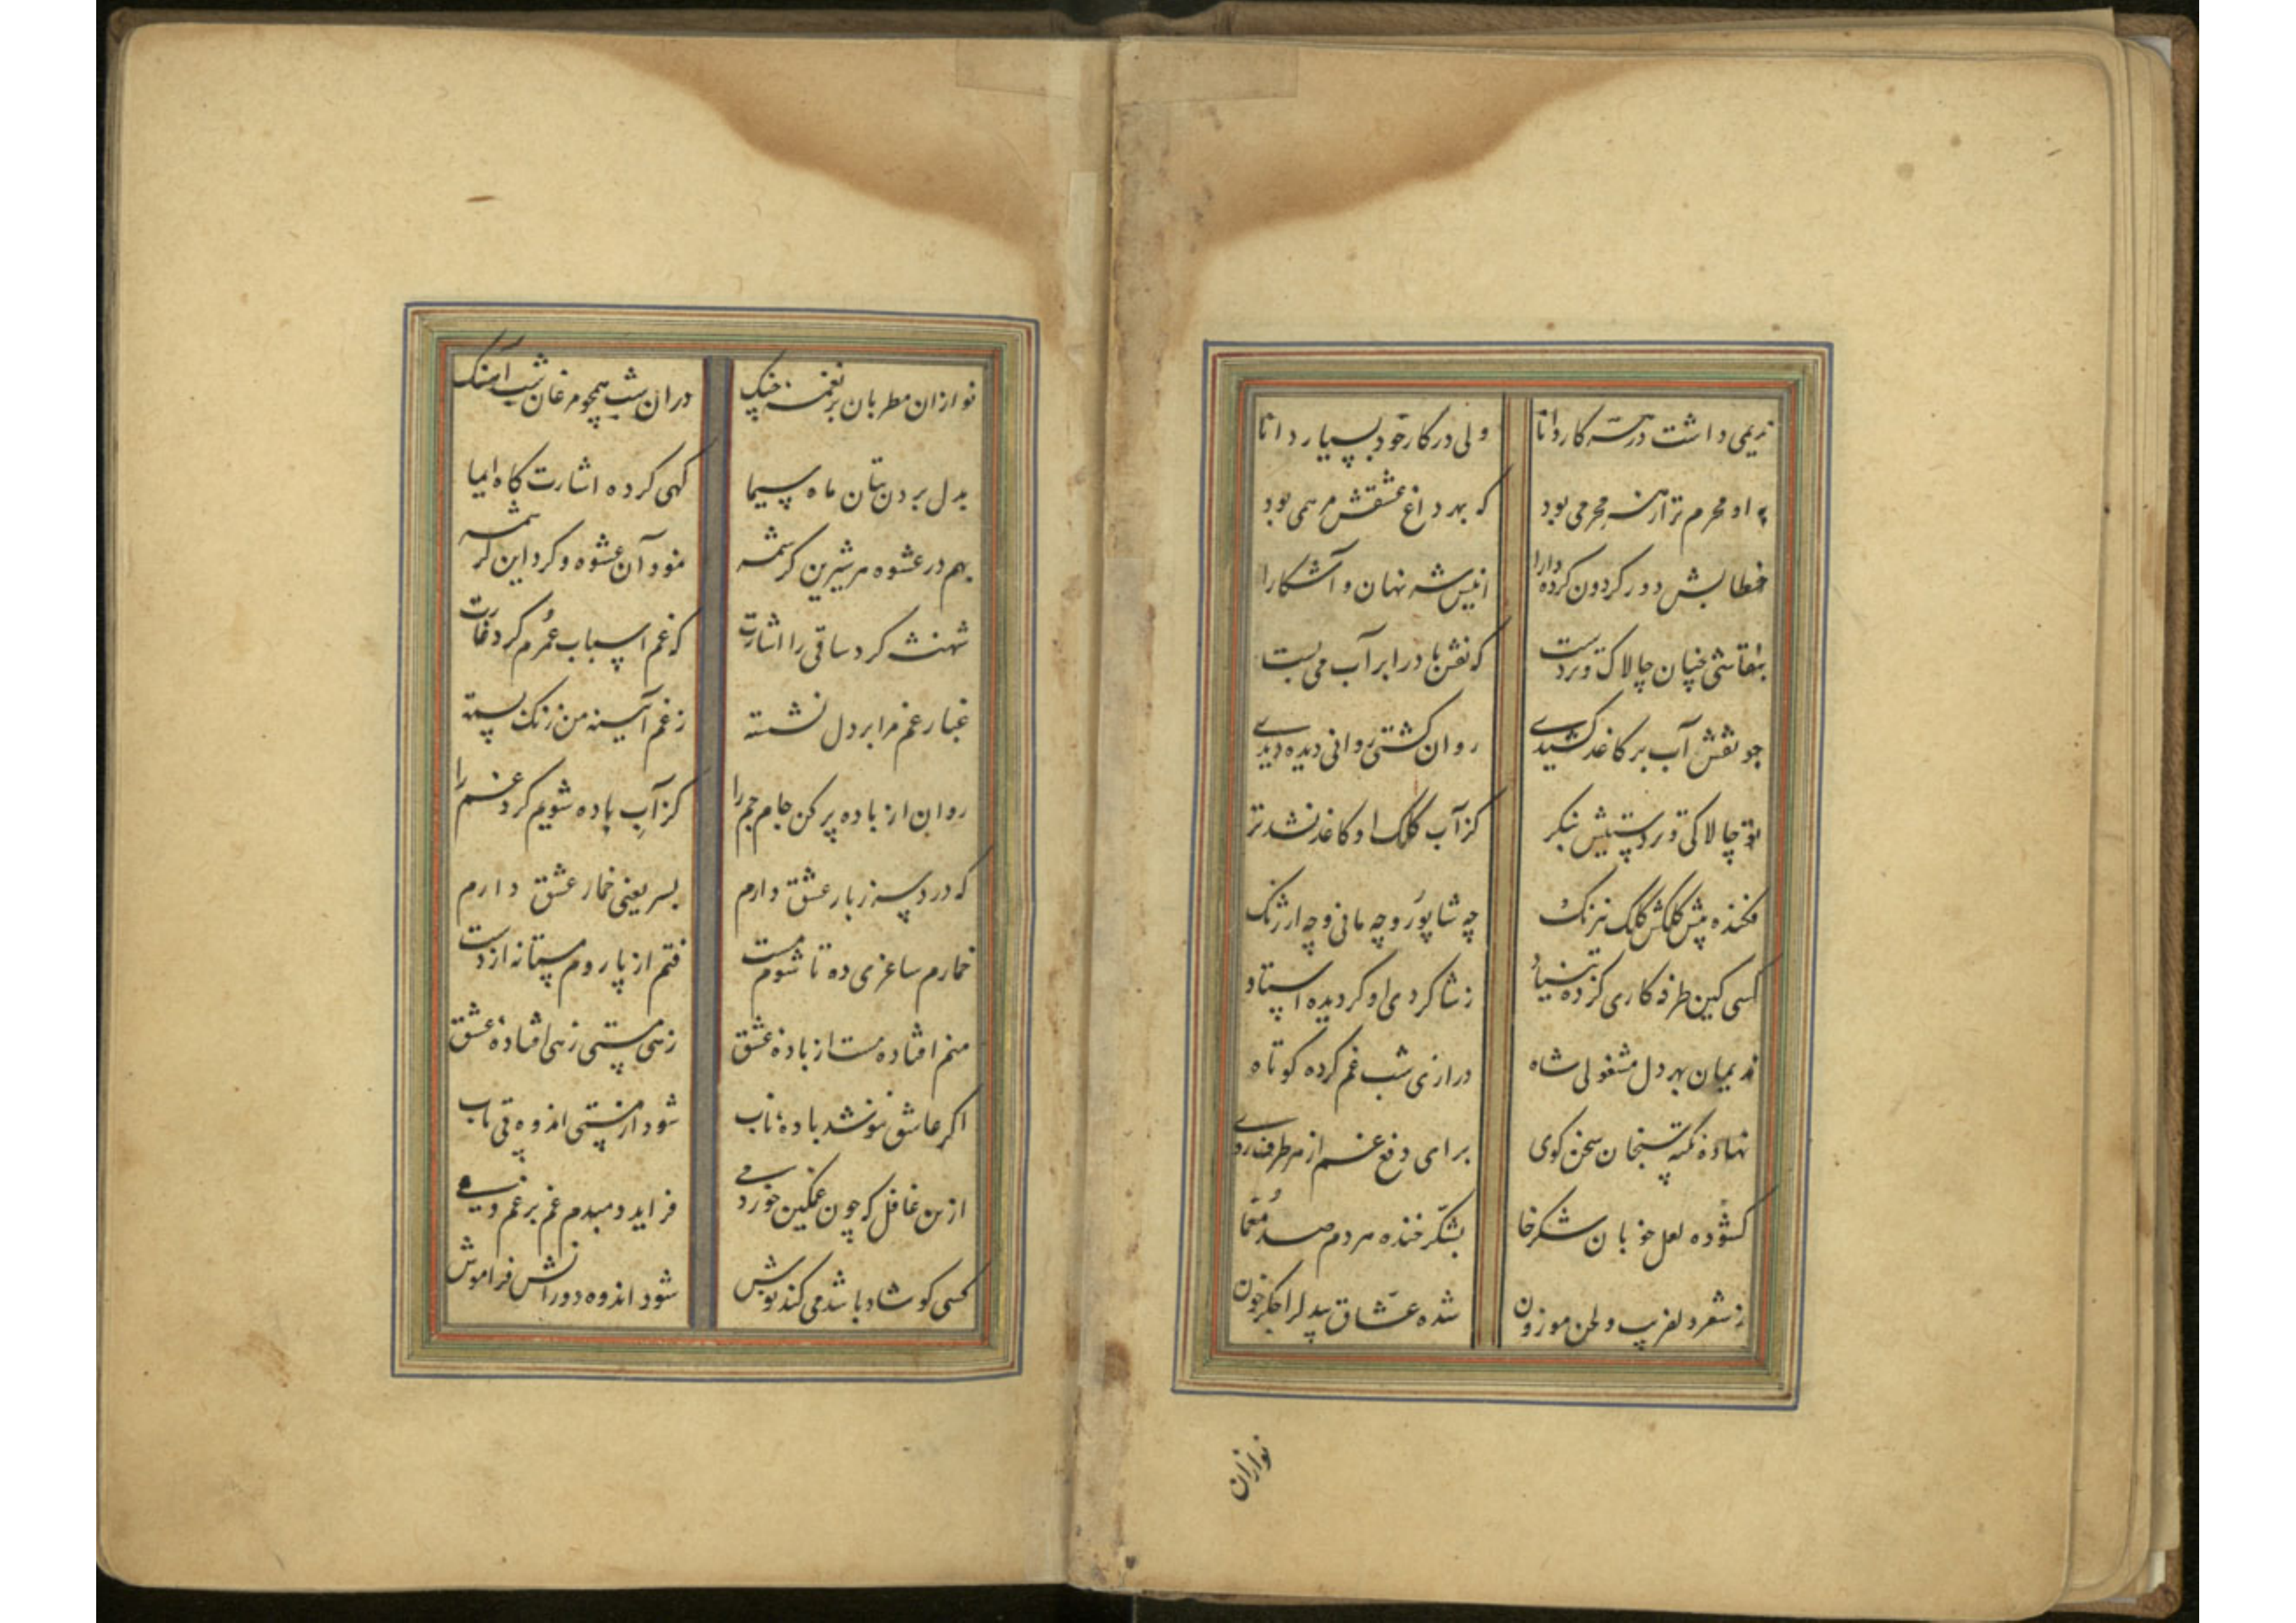 ندیمی داشت در هر کار دانا ولی در کار خود بسیار دانا
به او محرم تر از هر محرمی بود که بهر داغ عشقش مرهمی بود
خطابش دور کردون کرده دارا انیس شه نهان و آشکارا
بنقاشی چنان چالاک و تردست که نقش با در ابر آب می بست
چو نقش آب بر کاغذ کشیدی روان کشتی روانی دیده دیدی
تو چالاکی و تردستیش بنکر کز آب کلک او کاغذ نشد تر
فکنده پیش کلکش کلک نیرنک چه شاپور و چه مانی و چه ارژنک
کسی کین طرفه کاری کرده بنیاد ز شاکردی او کردیده استاد
ندیمان بهر دل مشغولی شاه درازی شب غم کرده کوتاه
نهاده نکته سنجان سخن کوی برای دفع غم از هر طرف روی
کشوده لعل خوبان شکرخا بشکر خنده هر دم صد معما
ز شعر دلفریب و لحن موزون شده عشاق بیدل را جکر خون
نوازان
نوازان مطربان بر نغمه چنک در آن شب همچو مرغان شب آهنک
بدل بردن بتان ماه سیما کهی کرده اشارت کاه ایما
بهم در عشوه هر شیرین کرشمه نمود آن عشوه و کرد این کرشمه
شهنشه کرد ساقی را اشارت که غم اسباب عمرم کرد غارت
غبار غم مرا بر دل نشسته ز غم آیینه من زنک بسته
روان از باده پر کن جام جم را کز آب باده شویم کرد غم را
که درد سر ز بار عشق دارم بسر یعنی خمار عشق دارم
خمارم ساغری ده تا شوم مست فتم از پا روم مستانه از دست
منم افتاده مست از باده عشق زهی مستی زهی افتاده عشق
اکر عاشق ننوشد باده ناب شود از مستی اندوه بی تاب
ازین غافل که چون غمکین خورد می فزاید دمبدم غم بر غم وی
کسی کو شاد باشد می کند نوش شود اندوه دورانش فراموش